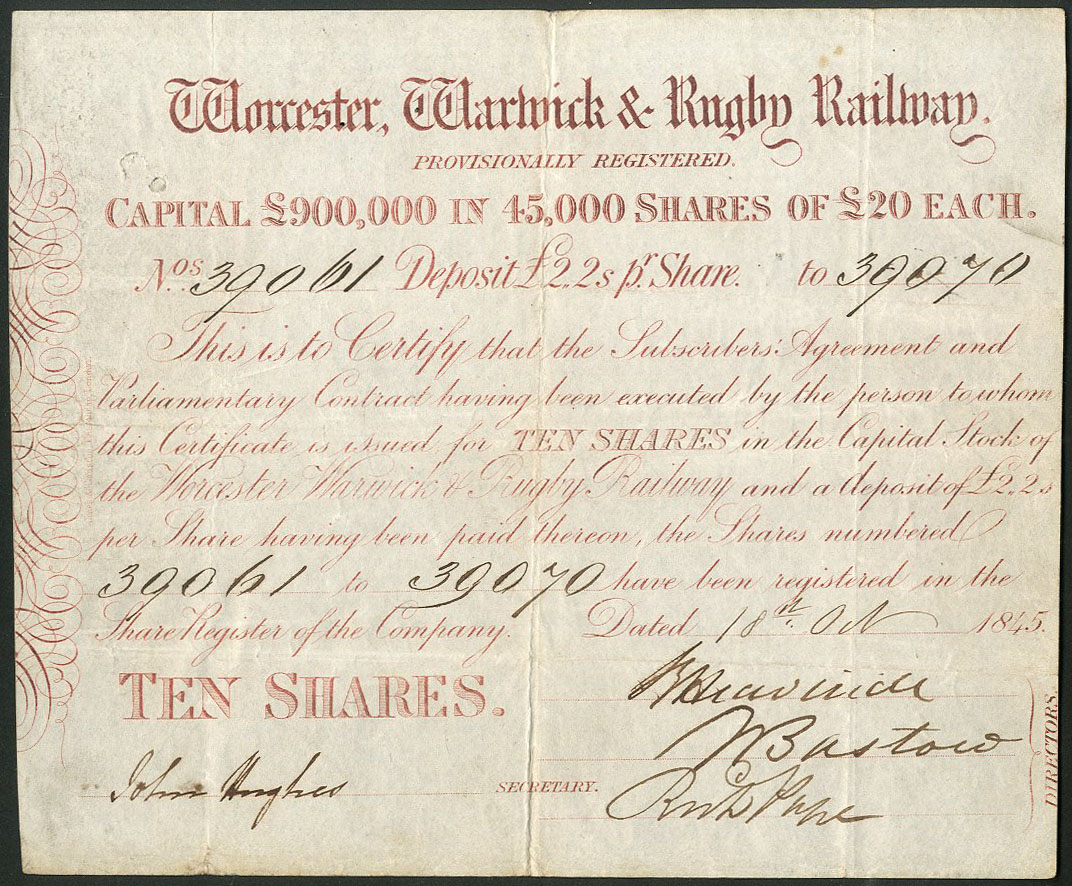 Worcester, Warwick & Rugby Railway.
PROVISIONALLY REGISTERED.
CAPITAL £900,000 IN 45,000 SHARES OF £20 EACH.
Nos. 39061 Deposit £2..2s pr. Share. to 39070
This is to Certify that the Subscribers' Agreement and
Parliamentary Contract having been executed by the person to whom
this Certificate is issued for TEN SHARES in the Capital Stock of
the Worcester Warwick & Rugby Railway and a deposit of £2..2s
per Share having been paid thereon, the Shares numbered
39061 to 39070 have been registered in the
Share Register of the Company. Dated 18th. Oct 1845.
TEN SHARES.
W Bastow
John Hughes SECRETARY.
Richd Pape
DIRECTORS.